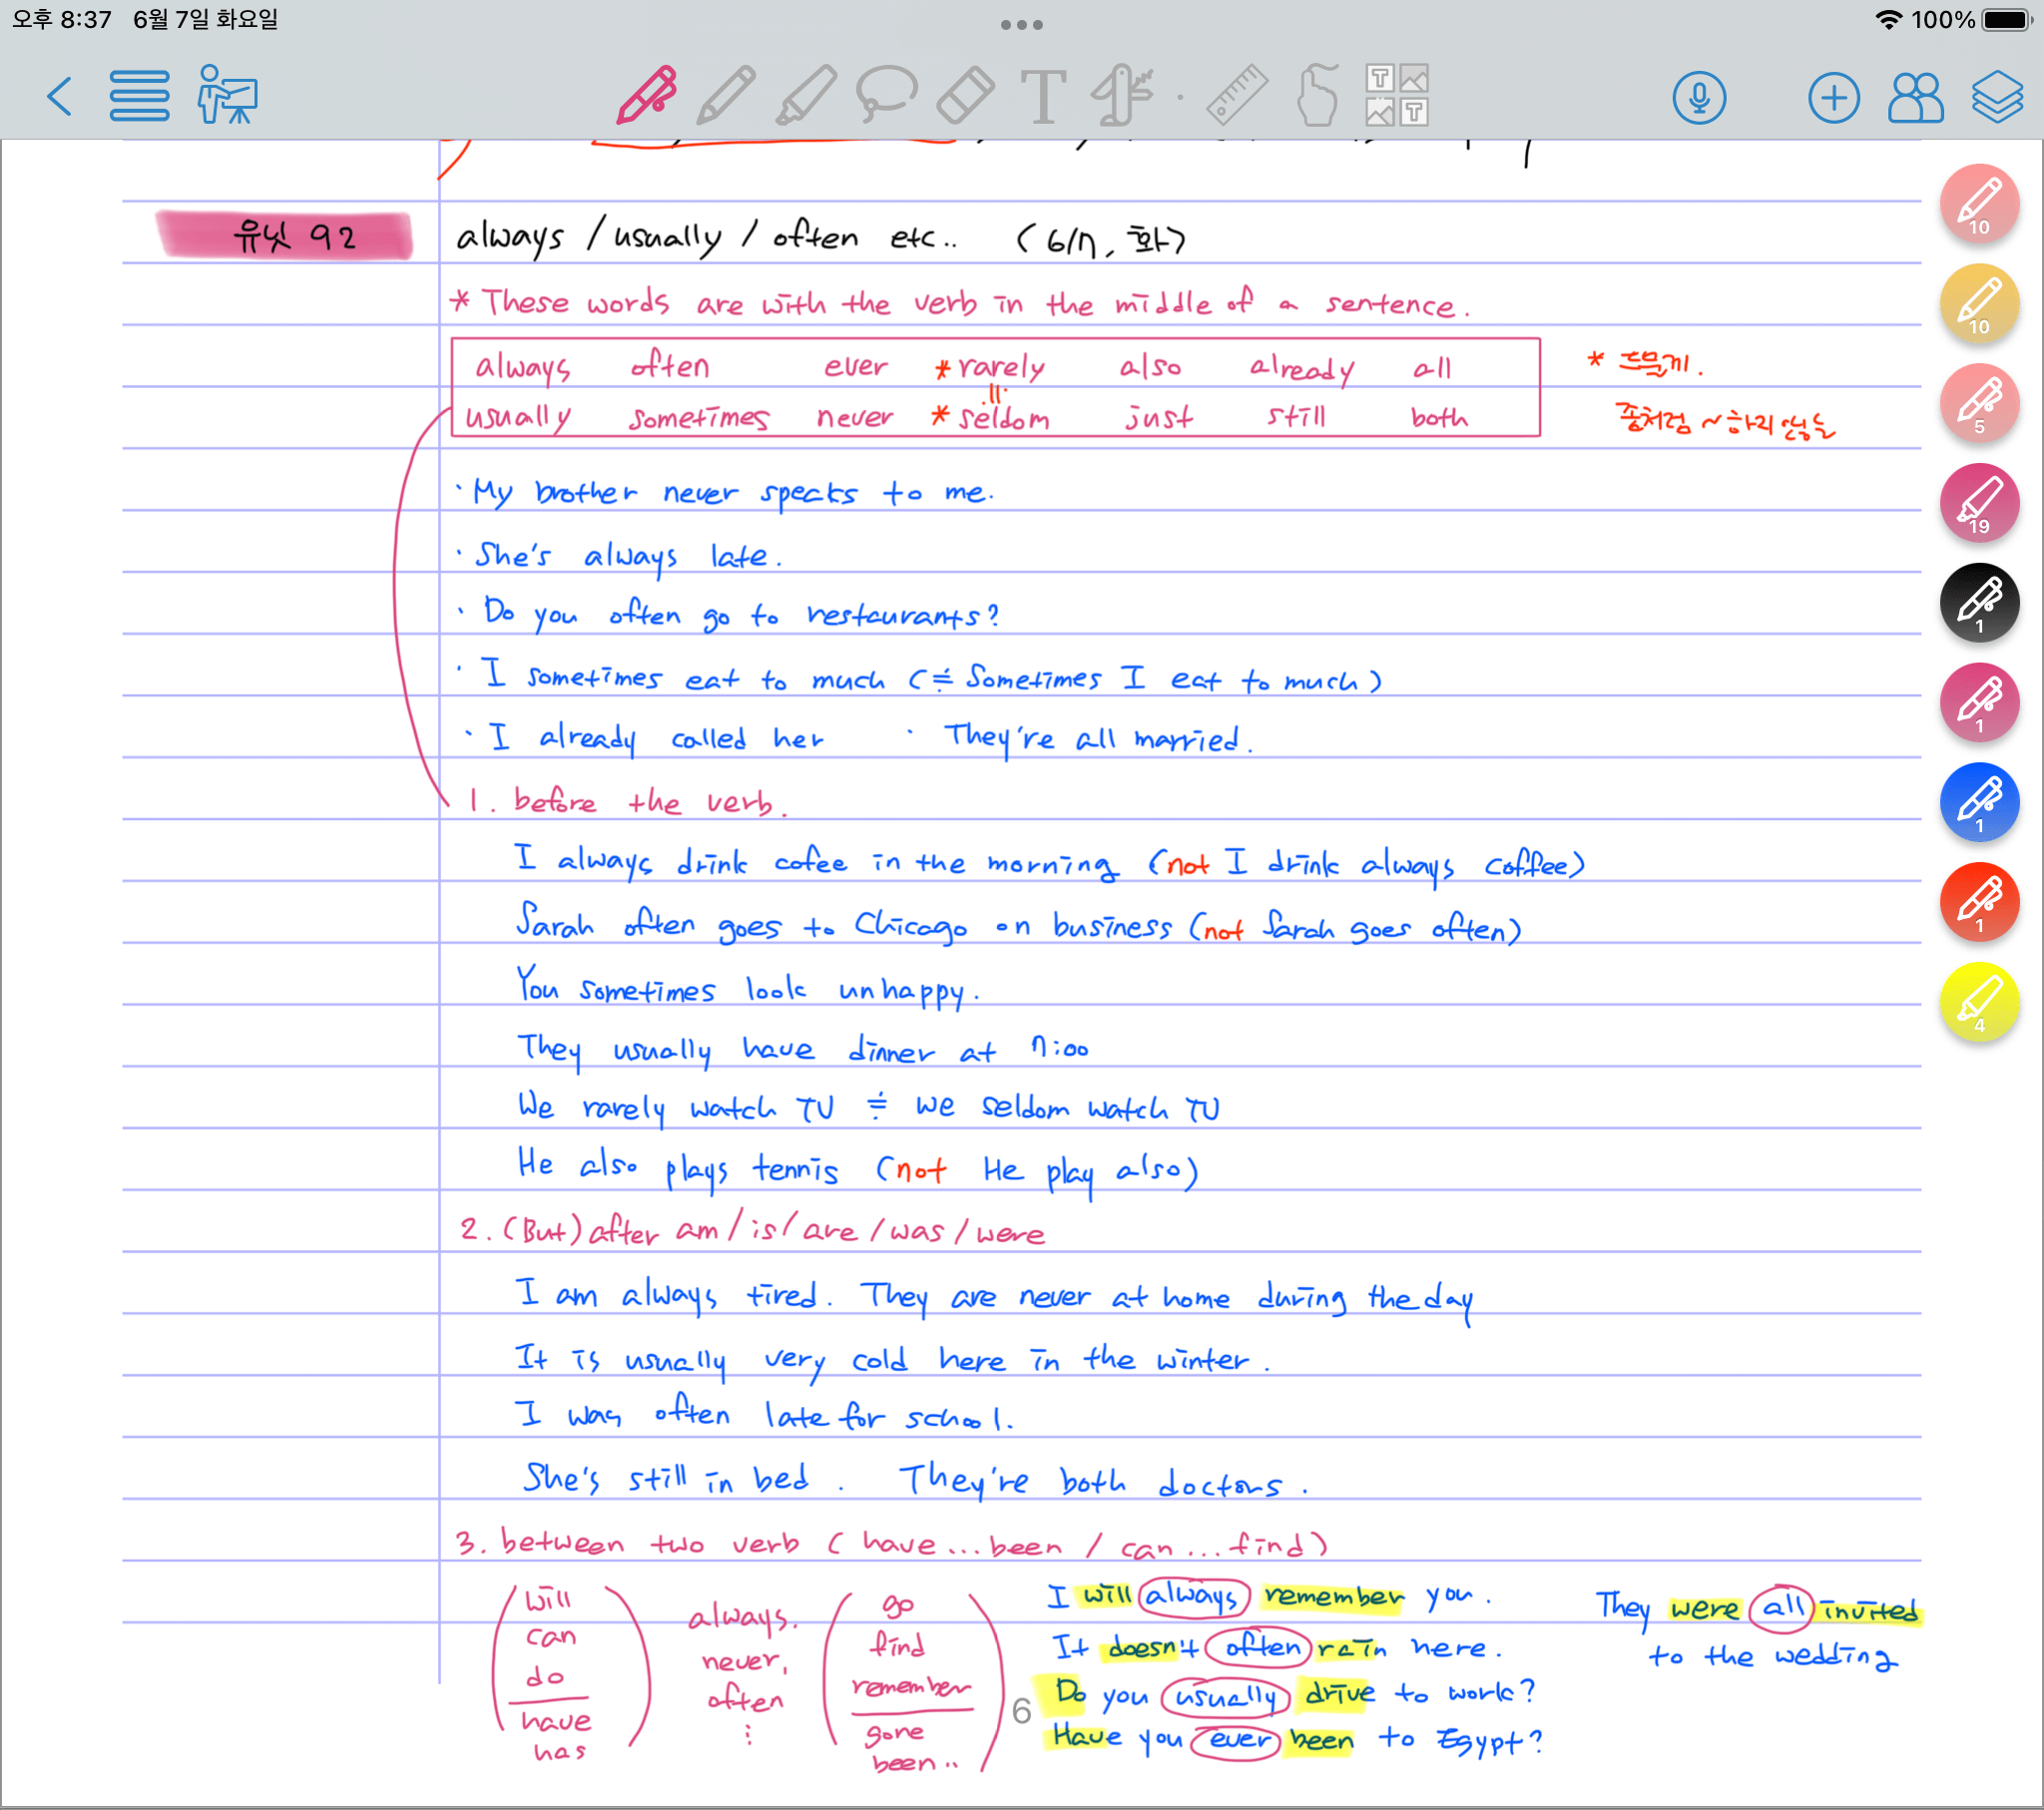 오후 8:37 6월 7일 화요일
100%
유닛 92
always / usually / often etc.. (6/7, 화)
* These words are with the verb in the middle of a sentence.
always often ever * rarely also already all
usually sometimes never * seldom just still both
* 드물게.
좀처럼 ~하지 않는
· My brother never speaks to me.
· She's always late.
· Do you often go to restaurants?
· I sometimes eat to much (≒ Sometimes I eat to much)
· I already called her · They're all married.
1. before the verb.
I always drink cofee in the morning (not I drink always coffee)
Sarah often goes to Chicago on business (not Sarah goes often)
You sometimes look unhappy.
They usually have dinner at 7:00
We rarely watch TV ≒ we seldom watch TV
He also plays tennis (not He play also)
2. (But) after am / is / are / was / were
I am always tired. They are never at home during the day
It is usually very cold here in the winter.
I was often late for school.
She's still in bed. They're both doctors.
3. between two verb ( have ... been / can ... find )
will
can
do
have
has
always.
never,
often
go
find
remember
gone
been..
I will always remember you.
It doesn't often rain here.
Do you usually drive to work?
Have you ever been to Egypt?
They were all invited
to the wedding
6
10
10
5
19
1
1
1
1
4